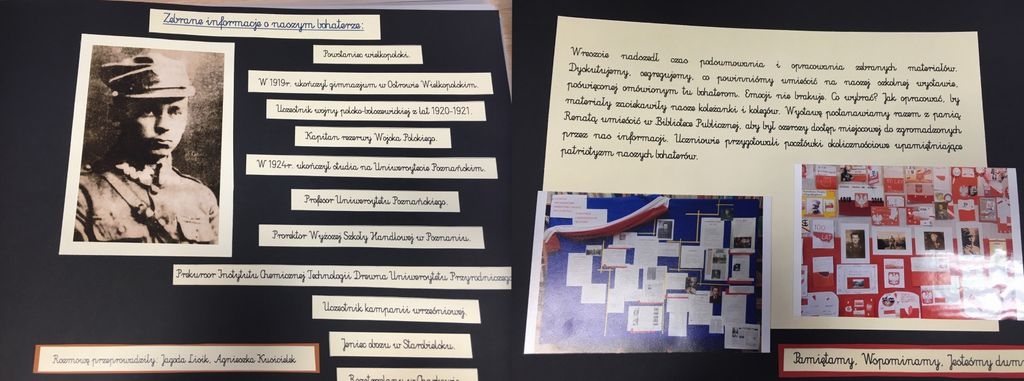 Zebrane informacje o naszym bohaterze:
Powstaniec wielkopolski.
W 1919r. ukończył gimnazjum w Ostrowie Wielkopolskim.
Uczestnik wojny polsko-bolszewickiej z lat 1920-1921.
Kapitan rezerwy Wojska Polskiego.
W 1924r. ukończył studia na Uniwersytecie Poznańskim.
Profesor Uniwersytetu Poznańskiego.
Prorektor Wyższej Szkoły Handlowej w Poznaniu.
Prekursor Instytutu Chemicznej Technologii Drewna Uniwersytetu Przyrodniczego
Uczestnik kampanii wrześniowej.
Jeniec obozu w Starobielsku.
Rozstrzelany w Charkowie
Rozmowę przeprowadziły: Jagoda Lisik, Agnieszka Kusicielek
Wreszcie nadszedł czas podsumowania i opracowania zebranych materiałów.
Dyskutujemy, segregujemy, co powinniśmy umieścić na naszej szkolnej wystawie,
poświęconej omówionym tu bohaterom. Emocji nie brakuje. Co wybrać? Jak opracować, by
materiały zaciekawiły nasze koleżanki i kolegów. Wystawę postanawiamy razem z panią
Renatą umieścić w Bibliotece Publicznej, aby był szerszy dostęp miejscowej do zgromadzonych
przez nas informacji. Uczniowie przygotowali pocztówki okolicznościowe upamiętniające
patriotyzm naszych bohaterów.
100 LAT
Pamiętamy. Wspominamy. Jesteśmy dum